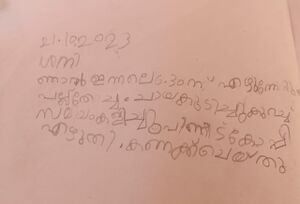 21.10.2023
ശനി
ഞാൻ ഇന്നലെ 6.30ന് എഴുന്നേറ്റു
പല്ല് തേച്ചു. ചായകുടിച്ചു കുറച്ച്
സമയം കളിച്ചു പിന്നീട് കോപ്പി
എഴുതി. കണക്ക് ചെയ്തു